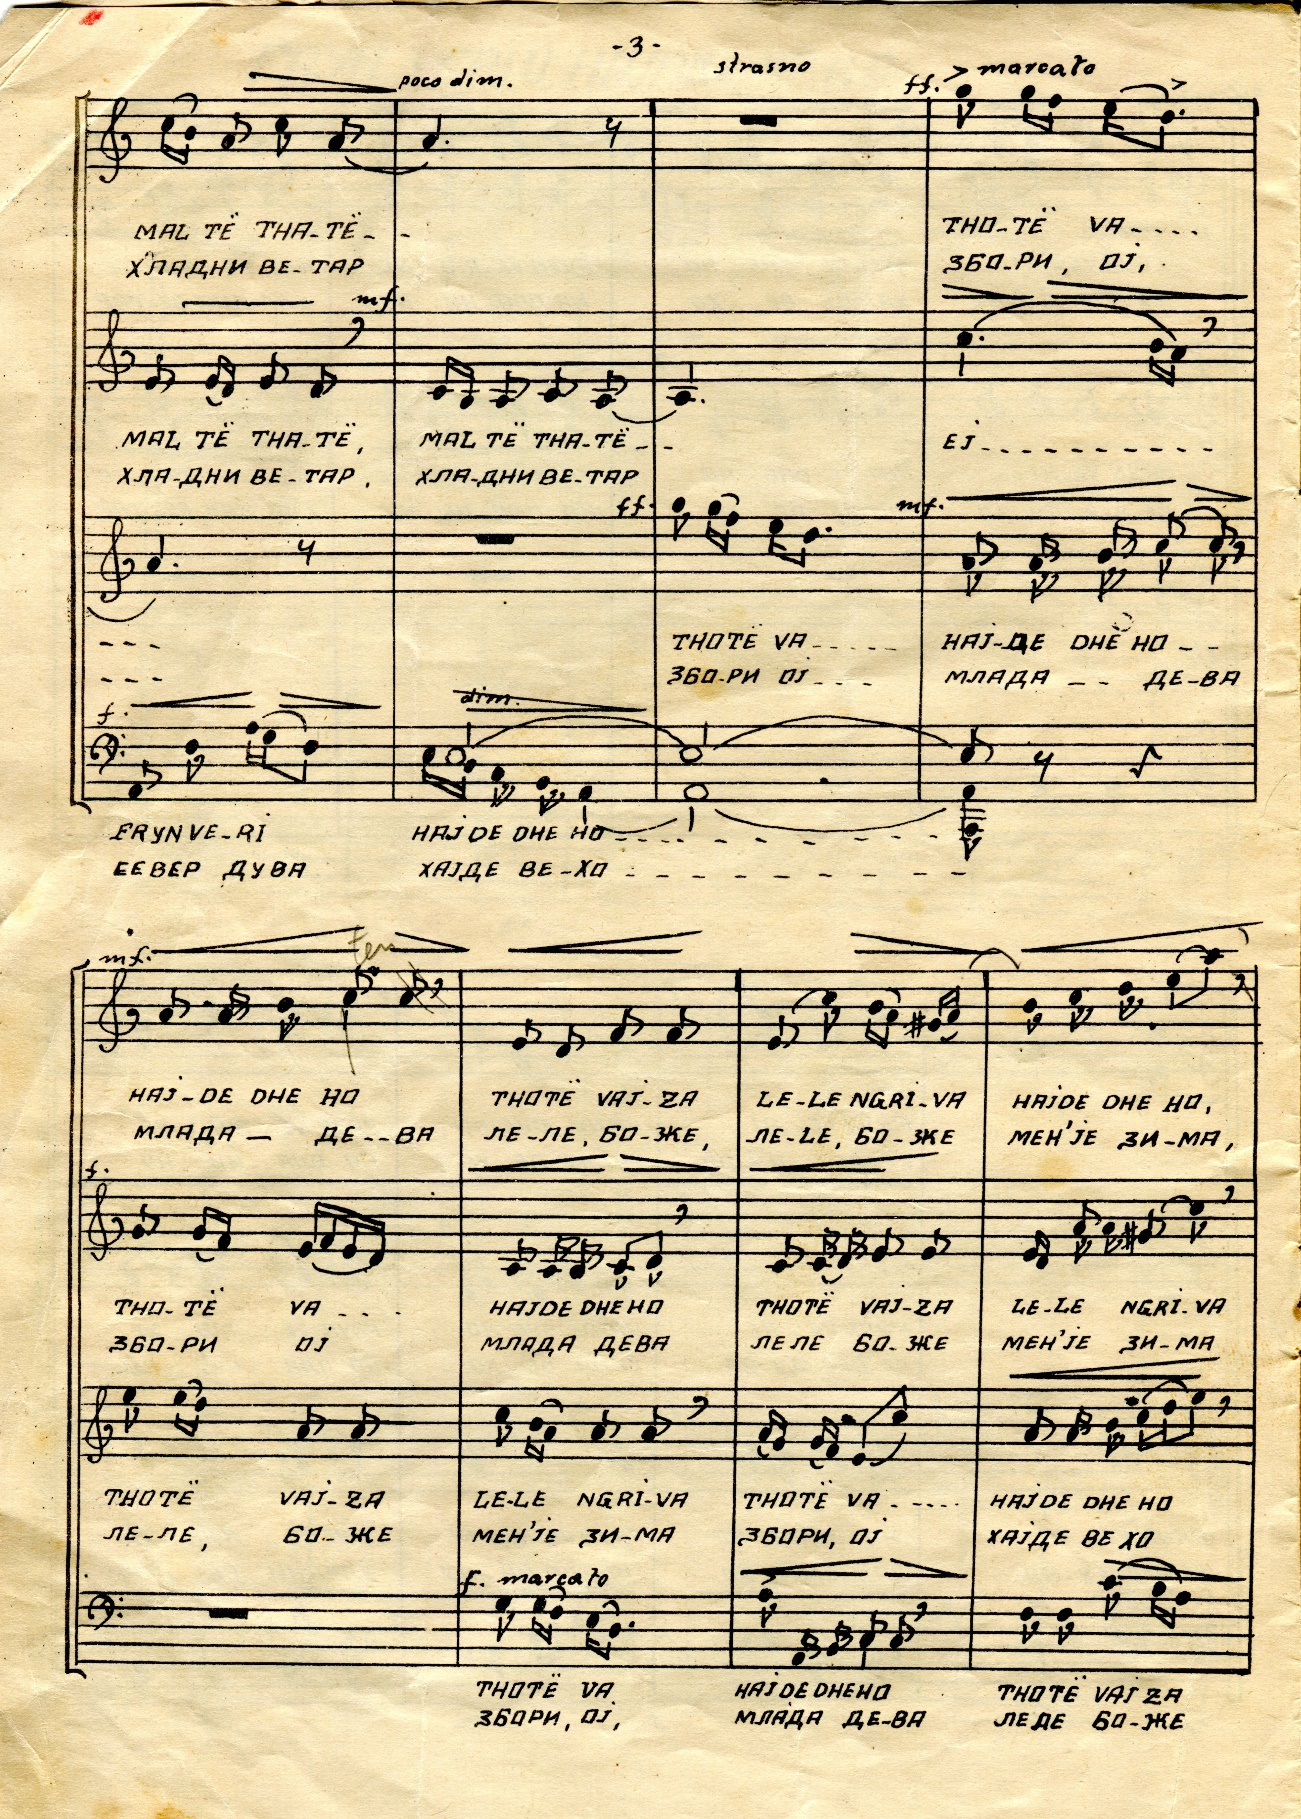 -3-
poco dim. strasno ff. marcato
MAL TË THA-TË- - THO-TË VA- - - -
ХЛАДНИ ВЕ-ТАР ЗБО-РИ, ОЈ,
mf.
MAL TË THA-TË, MAL TË THA-TË- - EJ- - - - - - - - - -
ХЛА-ДНИ ВЕ-ТАР, ХЛА-ДНИ ВЕ-ТАР
ff. mf.
- - - THOTË VA- - - - - HAJ-DE DHE HO - -
- - - ЗБО-РИ ОЈ - - - МЛАДА - - ДЕ-ВА
f. dim.
FRYN VE-RI HAJDE DHE HO - - - - - - - - -
СЕВЕР ДУВА ХАЈДЕ ВЕ-ХО - - - - - - - -
mf. ten
HAJ-DE DHE HO THOTË VAJ-ZA LE-LE NGRI-VA HAJDE DHE HO,
МЛАДА — ДЕ--ВА ЛЕ-ЛЕ, БО-ЖЕ, ЛЕ-LE, БО-ЖЕ МЕН'ЈЕ ЗИ-МА,
f.
THO-TË VA - - - HAJDE DHE HO THOTË VAJ-ZA LE-LE NGRI-VA
ЗБО-РИ ОЈ МЛАДА ДЕВА ЛЕЛЕ БО-ЖЕ МЕН'ЈЕ ЗИ-МА
THOTË VAJ-ZA LE-LE NGRI-VA THOTË VA - - - - - HAJDE DHE HO
ЛЕ-ЛЕ, БО-ЖЕ МЕН'ЈЕ ЗИ-МА ЗБОРИ, ОЈ ХАЈДЕ ВЕ ХО
f. marcato
THOTË VA HAJDE DHE HO THOTË VAJZA
ЗБОРИ, ОЈ, МЛАДА ДЕ-ВА ЛЕЛЕ БО-ЖЕ